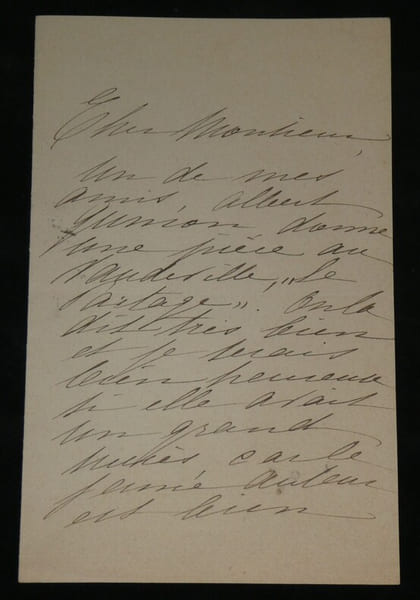 Cher Monsieur,
un de mes
amis, albert
guinon donne
une pièce au
Vaudeville, „Le
Partage". On la
dit très bien
et je serais
bien heureuse
si elle avait
un grand
succès car le
jeune auteur
est bien